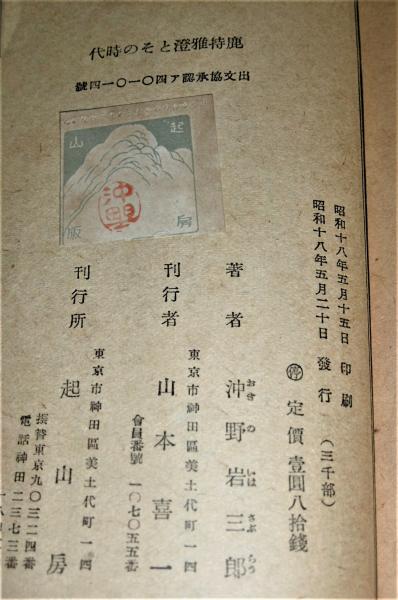 鹿持雅澄とその時代
出文協承認ア四〇一〇一四號
起山房版
昭和十八年五月十五日 印刷
昭和十八年五月二十日 發行 (三千部)
停 定價壹圓八拾錢
著者 沖野岩三郎
おきのいはさぶらう
東京市神田區美土代町一四
刊行者 山本喜一
會員番號 一〇七〇五五番
東京市神田區美土代町一四
刊行所 起山房
振替東京九〇三二四番
電話神田二三七三番